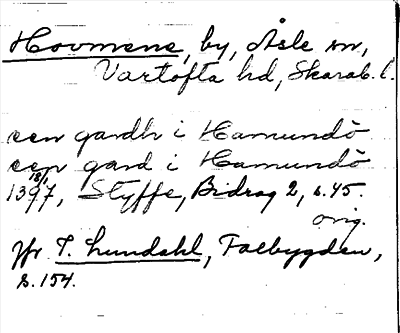 Hovmene, by, Åsle sn,
Vartofta hd, Skarab. l.
een gardh i Hamundö
een gard i Hamundö
1397 18/1, Styffe, Bidrag 2, s. 45.
orig.
Jfr T. Lundahl, Falbygden,
s. 154.